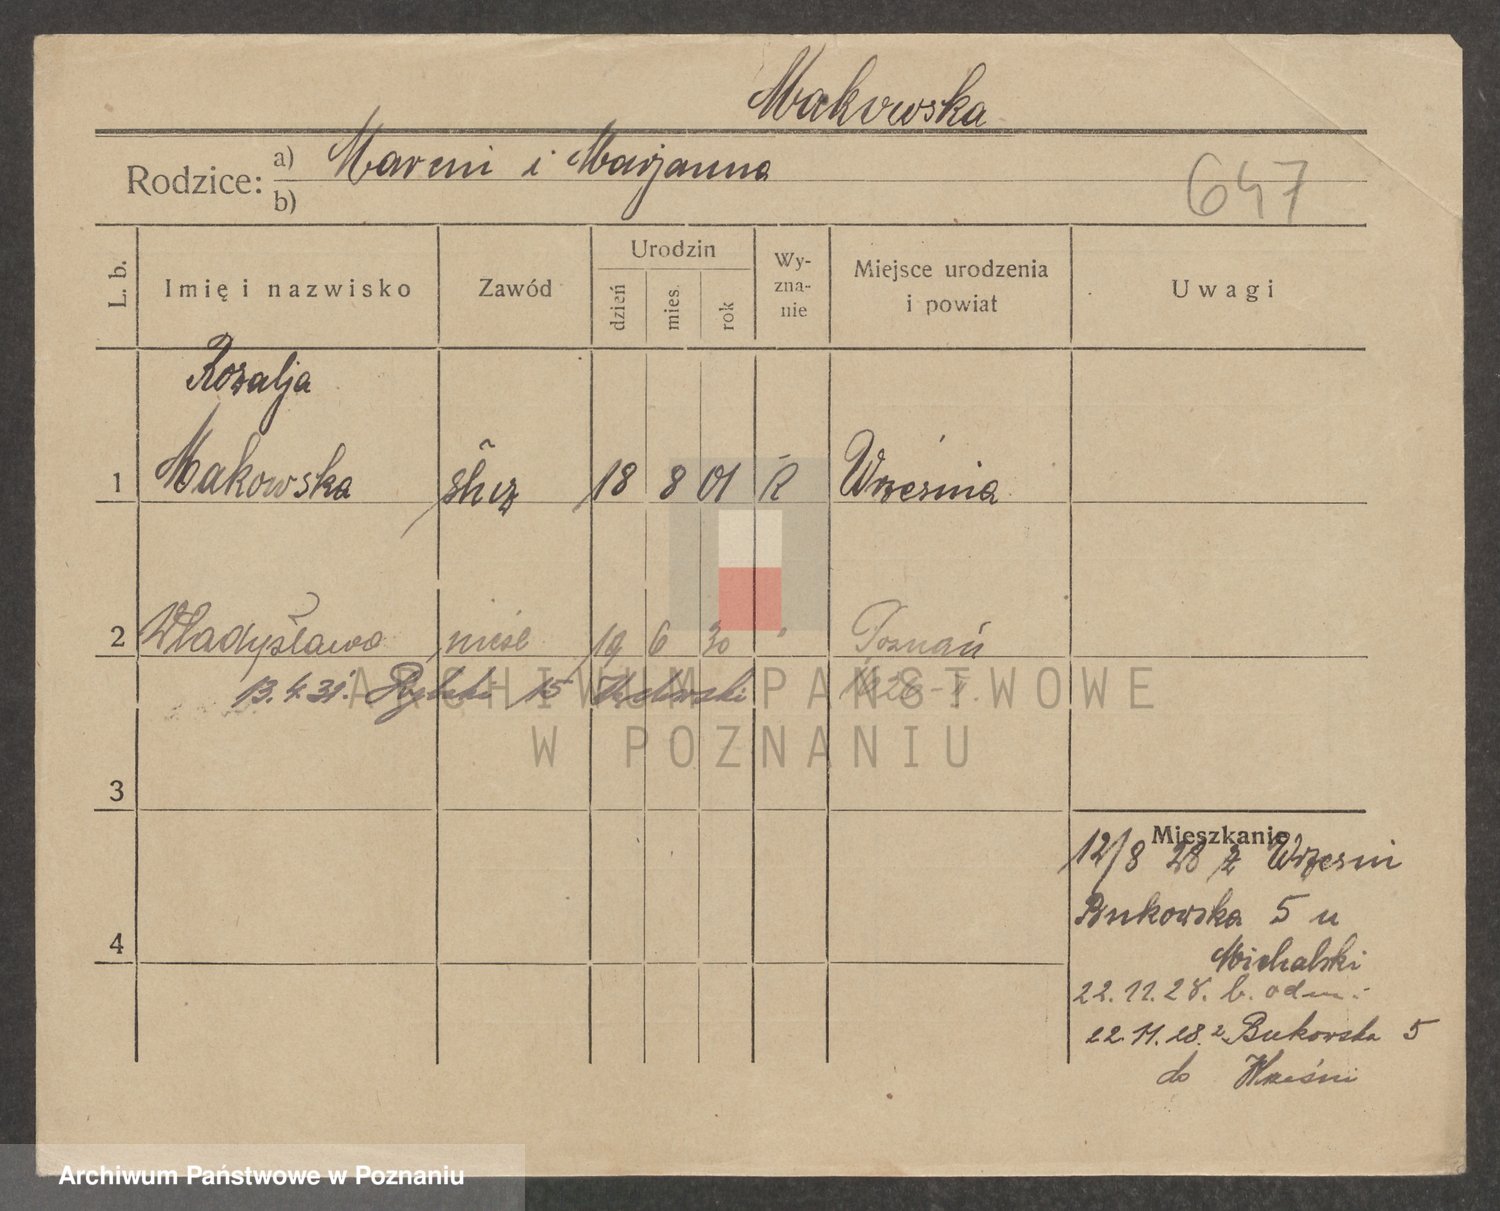 Makowska
Rodzice: a) Marcin i Marjanna
b)
647
L. b.
Imię i nazwisko
Zawód
Urodzin
dzień
mies.
rok
Wy-
zna-
nie
Miejsce urodzenia
i powiat
Uwagi
Rozalja
1 Makowska służ 18 8 01 R Września
2 Władysława nieśl 19 6 30 " Poznań
13. 4. 31. 15 1828-I.
ARCHIWUM PAŃSTWOWE
W POZNANIU
3
4
Mieszkanie
12/8 28 z Wrześni
Bukowska 5 u
Michalski
22. 11. 28. b. odm.
22. 11. 28. z Bukowska 5
do Wrześni
Archiwum Państwowe w Poznaniu